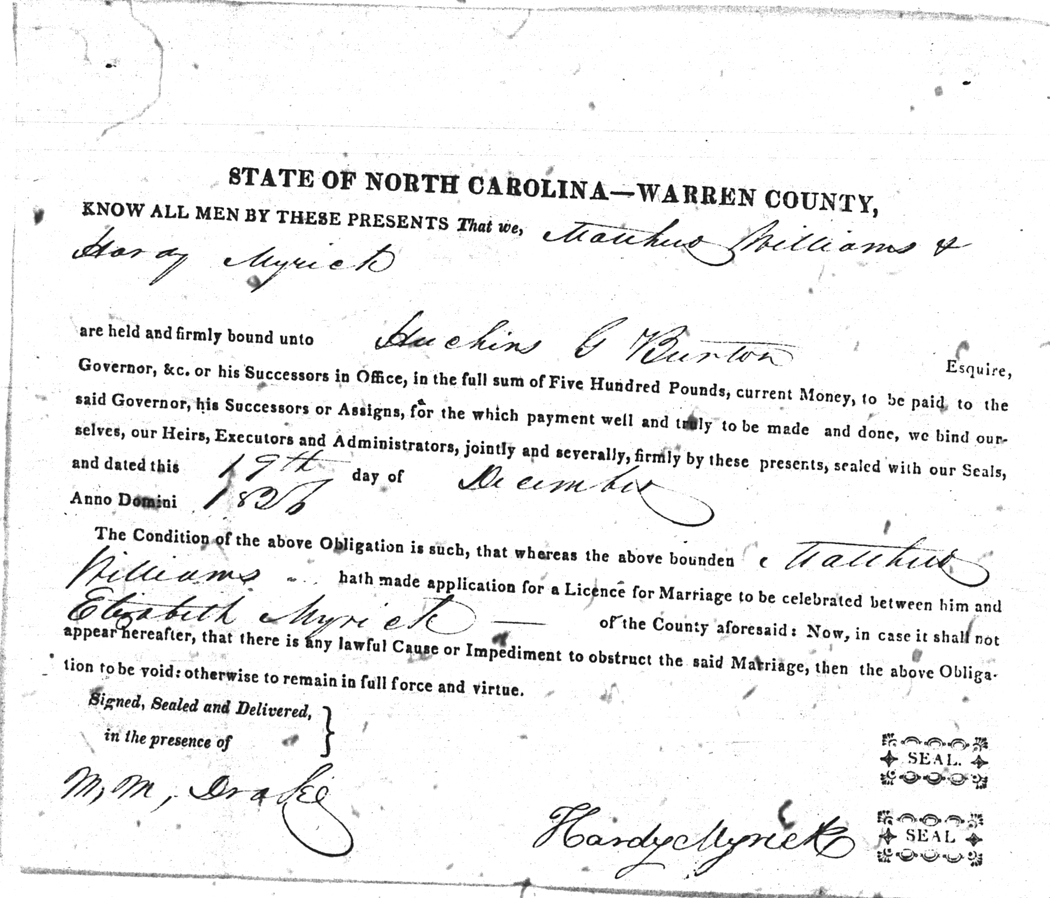 STATE OF NORTH CAROLINA—WARREN COUNTY,
KNOW ALL MEN BY THESE PRESENTS That we, Matthew Williams &
Hardy Myrick
are held and firmly bound unto Huchins G Burton Esquire,
Governor, &c. or his Successors in Office, in the full sum of Five Hundred Pounds, current Money, to be paid to the
said Governor, his Successors or Assigns, for the which payment well and truly to be made and done, we bind our-
selves, our Heirs, Executors and Administrators, jointly and severally, firmly by these presents, sealed with our Seals,
and dated this 19th day of December
Anno Domini 1826
The Condition of the above Obligation is such, that whereas the above bounden Matthew
Williams hath made application for a Licence for Marriage to be celebrated between him and
Elizabeth Myrick — of the County aforesaid: Now, in case it shall not
appear hereafter, that there is any lawful Cause or Impediment to obstruct the said Marriage, then the above Obliga-
tion to be void: otherwise to remain in full force and virtue.
Signed, Sealed and Delivered,
in the presence of
SEAL.
M, M, Drake
Hardy Myrick SEAL